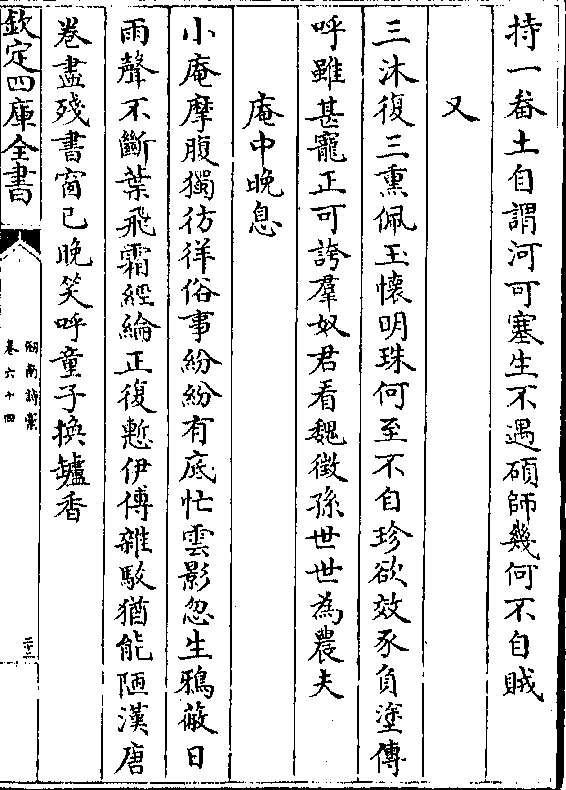 持一畚土自謂河可塞生不遇碩師幾何不自賊
又
三沐復三熏佩玉懷明珠何至不自珍欲效豕負塗傳
呼雖甚寵正可誇羣奴君看魏徵孫世世為農夫
庵中晚息
小庵摩腹獨彷徉俗事紛紛有底忙雲影忽生鴉蔽日
雨聲不斷葉飛霜經綸正復慙伊傅雜駁猶能陋漢唐
卷盡殘書窗已晚笑呼童子換鑪香
欽定四庫全書
劔南詩藁
卷六十四
二十三